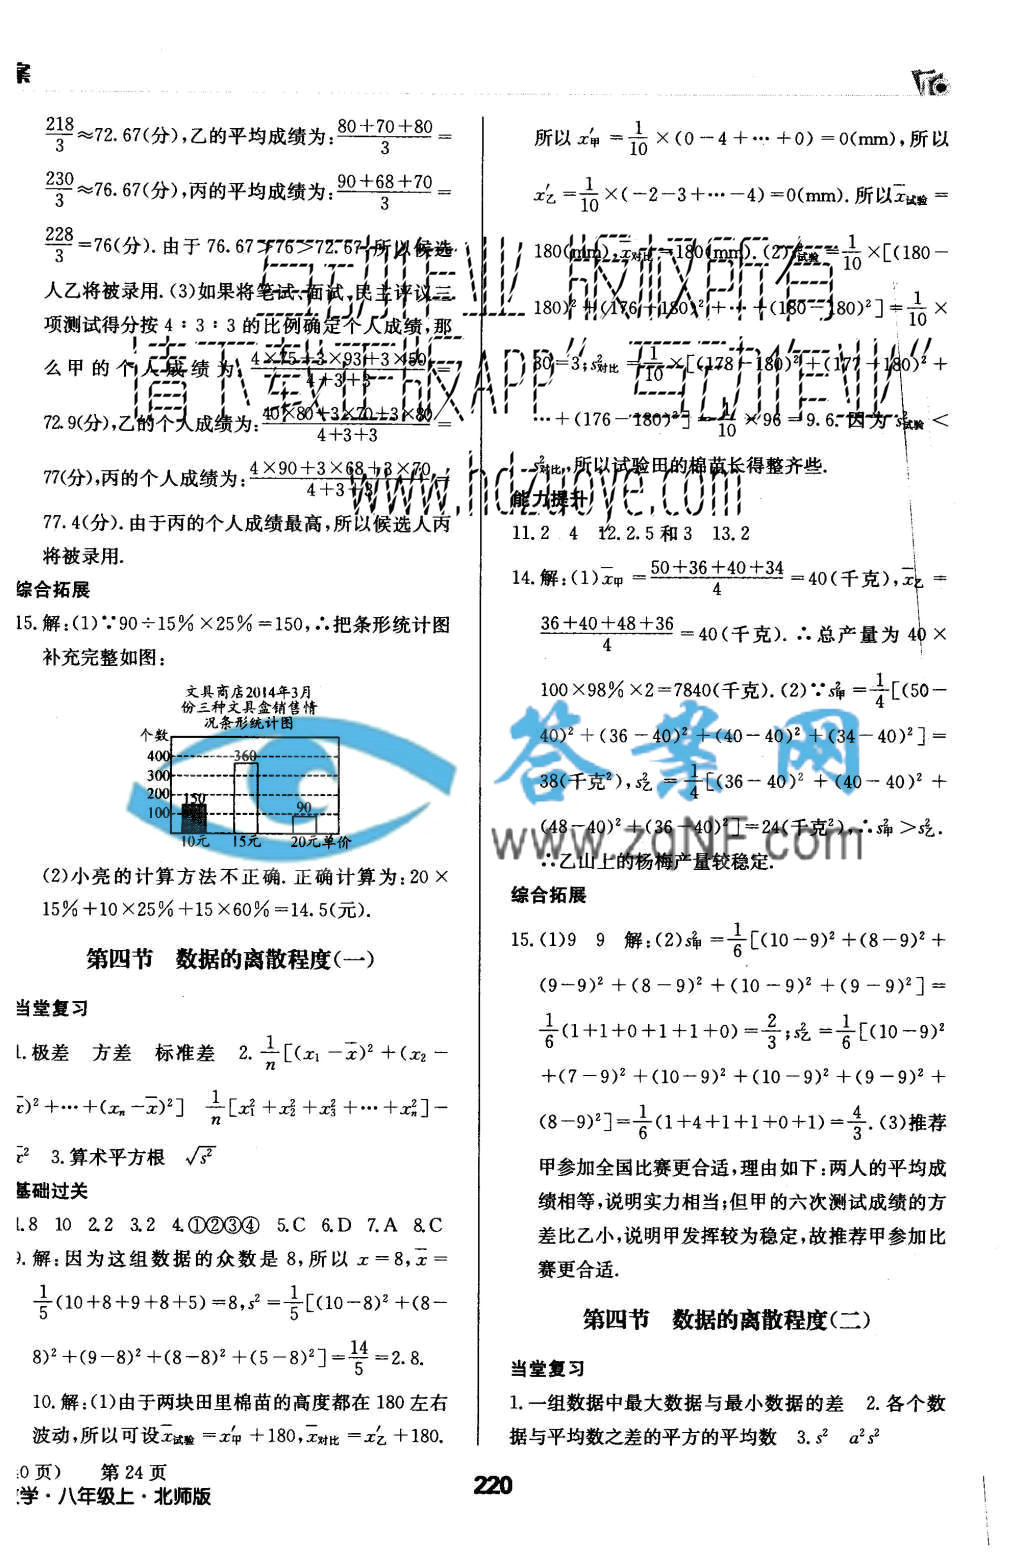 案
218/3≈72.67(分),乙的平均成绩为:(80+70+80)/3=
230/3≈76.67(分),丙的平均成绩为:(90+68+70)/3=
228/3=76(分).由于 76.67>76>72.67,所以候选
人乙将被录用.(3)如果将笔试、面试、民主评议三
项测试得分按 4∶3∶3 的比例确定个人成绩,那
么甲的个人成绩为:(4×75+3×93+3×50)/(4+3+3)=
72.9(分),乙的个人成绩为:(40×80+3×70+3×80)/(4+3+3)=
77(分),丙的个人成绩为:(4×90+3×68+3×70)/(4+3+3)=
77.4(分).由于丙的个人成绩最高,所以候选人丙
将被录用.
综合拓展
15.解:(1)∵90÷15%×25%=150,∴把条形统计图
补充完整如图:
文具商店2014年3月
份三种文具盒销售情
况条形统计图
个数
400
360
300
200
150
100
90
10元 15元 20元 单价
(2)小亮的计算方法不正确.正确计算为:20×
15%+10×25%+15×60%=14.5(元).
第四节 数据的离散程度(一)
当堂复习
1.极差 方差 标准差 2.1/n[(x₁-x̄)²+(x₂-
x̄)²+…+(xₙ-x̄)²] 1/n[x₁²+x₂²+x₃²+…+xₙ²]-
x̄² 3.算术平方根 √s²
基础过关
1.8 10 2.2 3.2 4.①②③④ 5.C 6.D 7.A 8.C
9.解:因为这组数据的众数是 8,所以 x=8,x̄=
1/5(10+8+9+8+5)=8,s²=1/5[(10-8)²+(8-
8)²+(9-8)²+(8-8)²+(5-8)²]=14/5=2.8.
10.解:(1)由于两块田里棉苗的高度都在 180 左右
波动,所以可设x̄试验=x̄′甲+180,x̄对比=x̄′乙+180.
所以 x̄′甲=1/10×(0-4+…+0)=0(mm),所以
x̄′乙=1/10×(-2-3+…-4)=0(mm).所以x̄试验=
180(mm),x̄对比=180(mm).(2)s²试验=1/10×[(180-
180)²+(176-180)²+…+(180-180)²]=1/10×
30=3;s²对比=1/10×[(178-180)²+(177-180)²+
…+(176-180)²]=1/10×96=9.6.因为 s²试验<
s²对比,所以试验田的棉苗长得整齐些.
能力提升
11.2 4 12.2.5 和 3 13.2
14.解:(1)x̄甲=(50+36+40+34)/4=40(千克),x̄乙=
(36+40+48+36)/4=40(千克).∴总产量为 40×
100×98%×2=7840(千克).(2)∵s²甲=1/4[(50-
40)²+(36-40)²+(40-40)²+(34-40)²]=
38(千克²),s²乙=1/4[(36-40)²+(40-40)²+
(48-40)²+(36-40)²]=24(千克²),∴s²甲>s²乙.
∴乙山上的杨梅产量较稳定.
综合拓展
15.(1)9 9 解:(2)s²甲=1/6[(10-9)²+(8-9)²+
(9-9)²+(8-9)²+(10-9)²+(9-9)²]=
1/6(1+1+0+1+1+0)=2/3;s²乙=1/6[(10-9)²
+(7-9)²+(10-9)²+(10-9)²+(9-9)²+
(8-9)²]=1/6(1+4+1+1+0+1)=4/3.(3)推荐
甲参加全国比赛更合适,理由如下:两人的平均成
绩相等,说明实力相当;但甲的六次测试成绩的方
差比乙小,说明甲发挥较为稳定,故推荐甲参加比
赛更合适.
第四节 数据的离散程度(二)
当堂复习
1.一组数据中最大数据与最小数据的差 2.各个数
据与平均数之差的平方的平均数 3.s² a²s²
0页) 第24页
学·八年级上·北师版
220
互动作业 版权所有
请下载正版APP"互动作业"
www.hdzuoye.com
答案网
www.zqNF.com